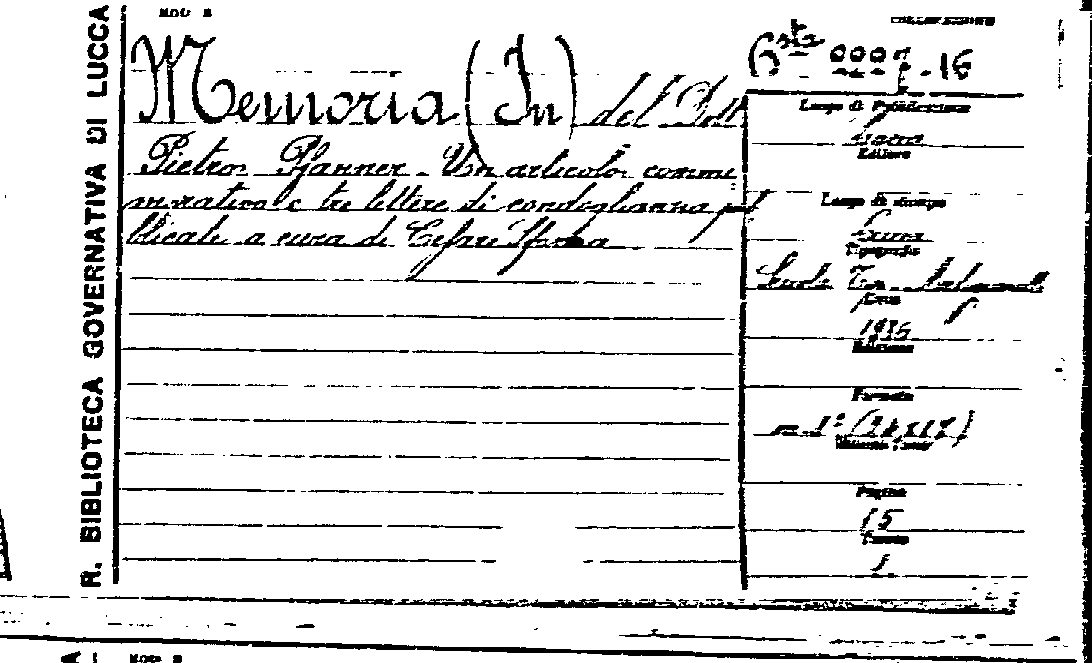 R. BIBLIOTECA GOVERNATIVA DI LUCCA
MOD B
COLLOCAZIONE
Memoria (In) del Dott
Pietro Pfanner. Un articolo comme
morativo e tre lettere di condoglianza pub
blicate a cura di Cesare Sforza
Busta 16
Luogo di Pubblicazione
Lucca
Editore
Luogo di stampa
Lucca
Tipografia
Scuola Tip.
Anno
Edizione
Formato
Pagine
15
MOD B